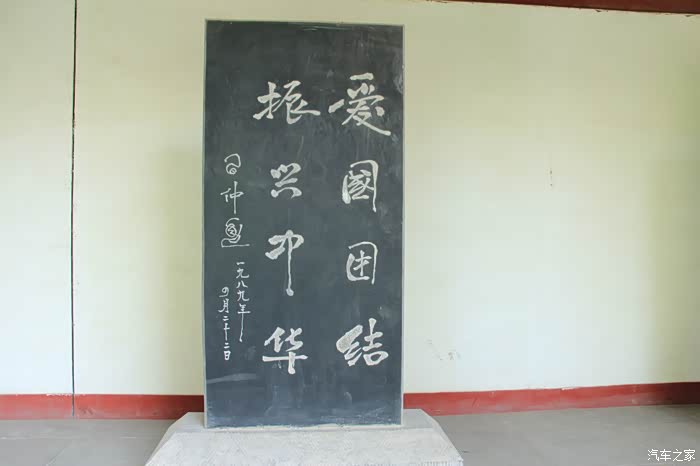 爱國团结
振兴中华
習仲勳
一九八九年
四月二十二日
汽车之家